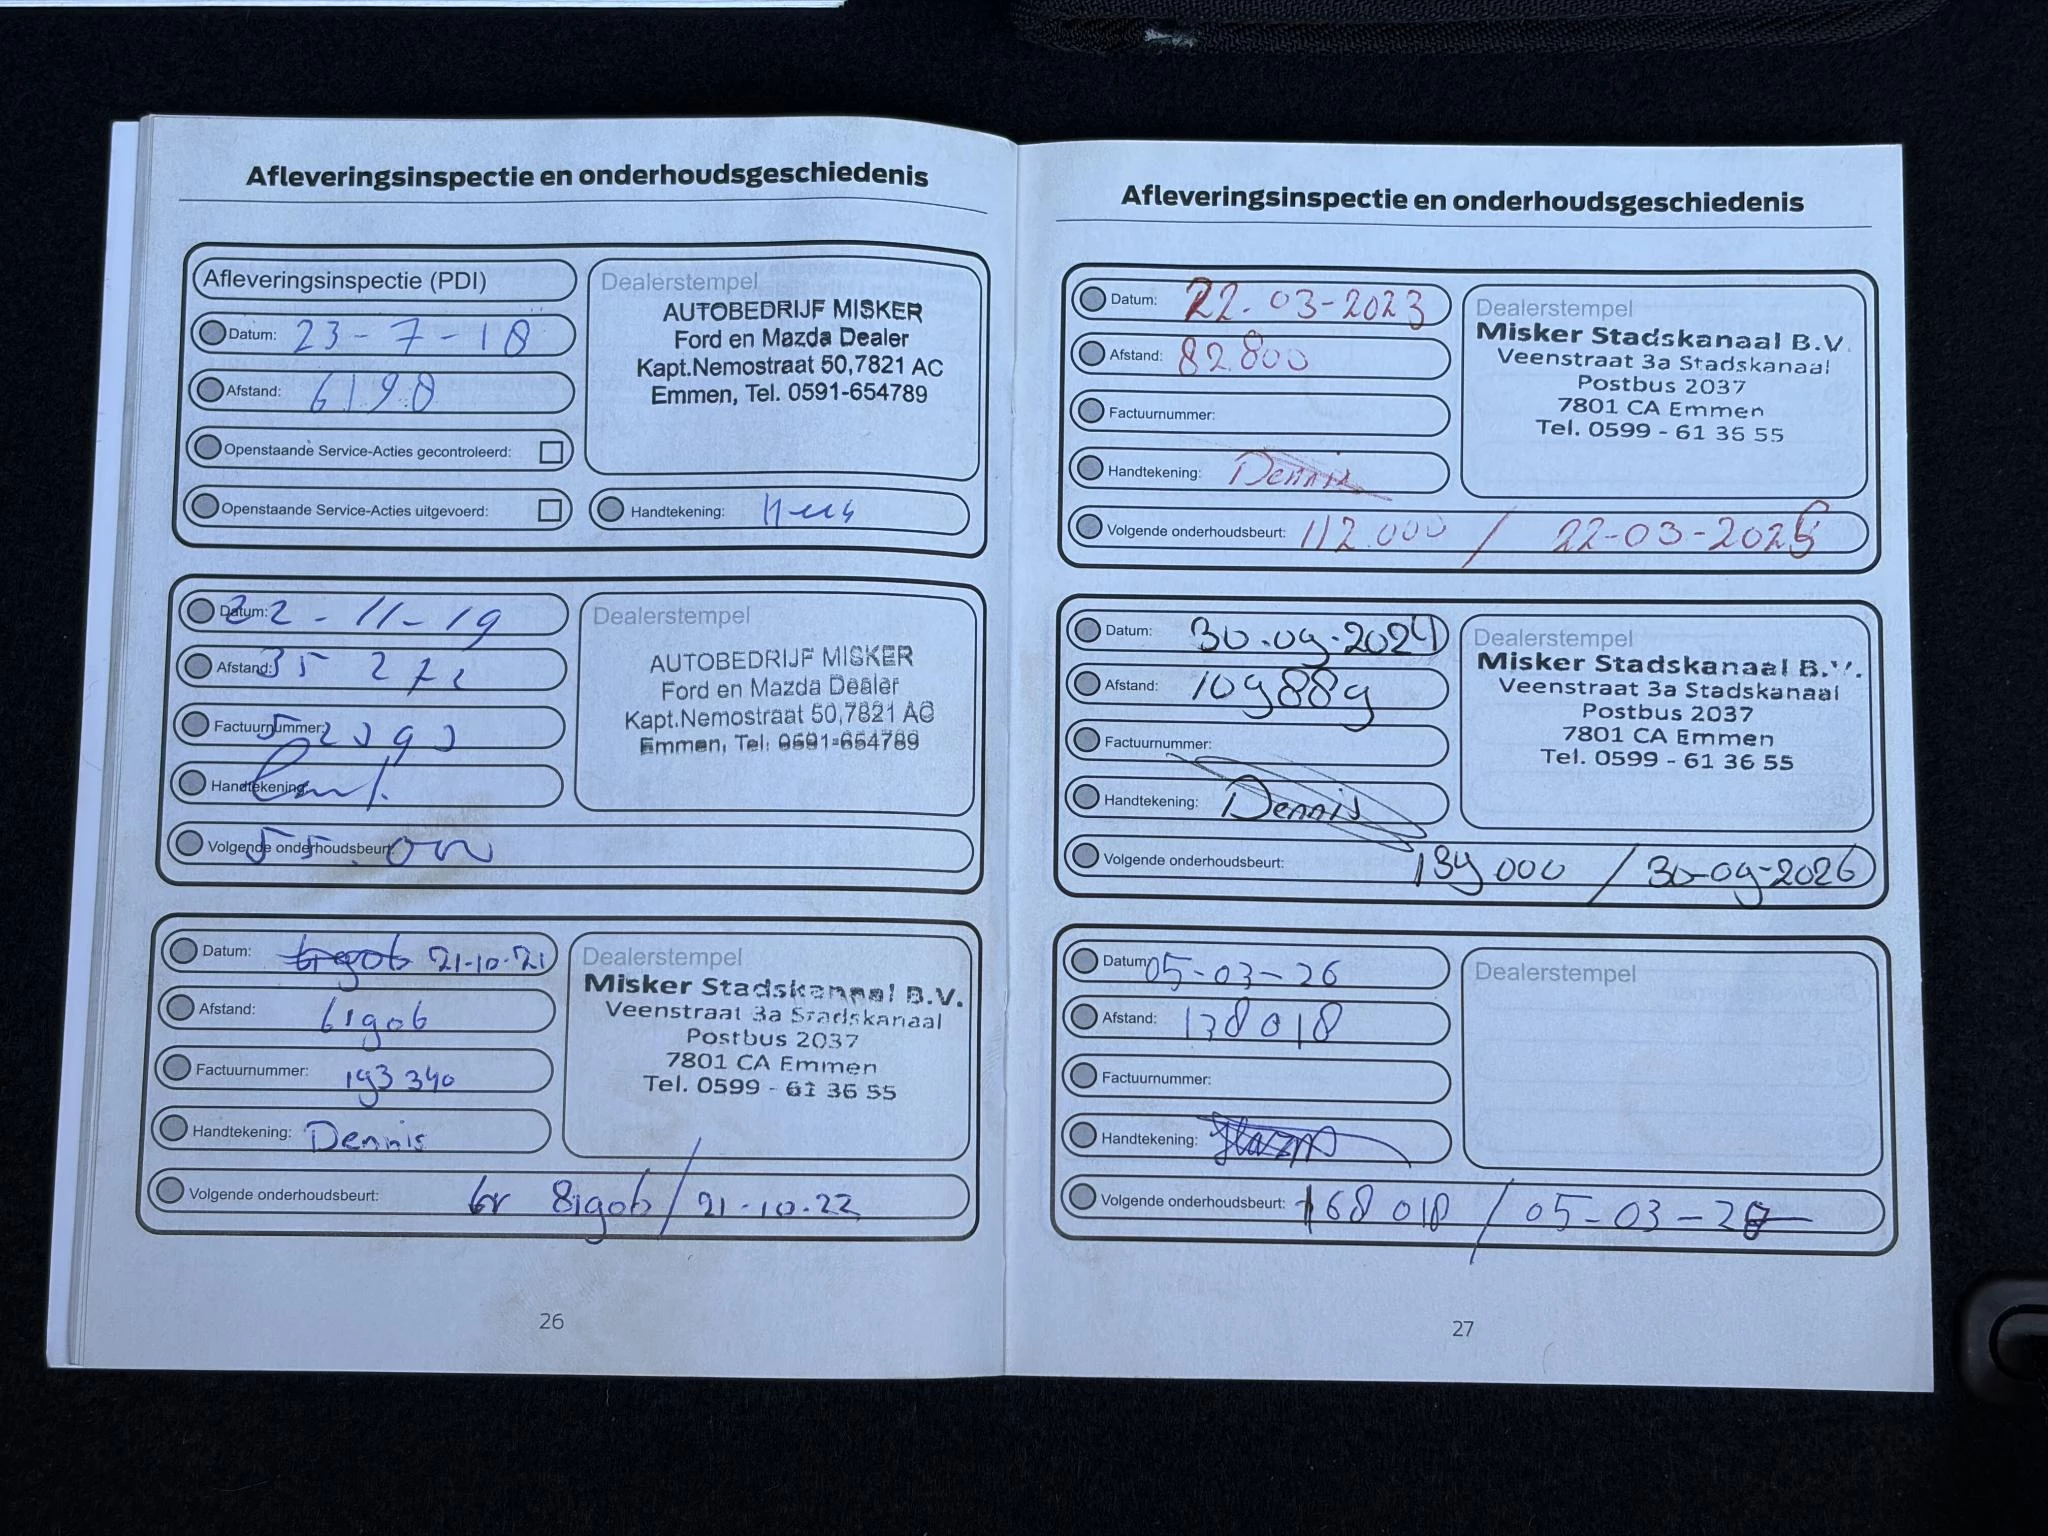 Afleveringsinspectie en onderhoudsgeschiedenis
Afleveringsinspectie (PDI)
Datum: 23-7-18
Afstand: 6198
Openstaande Service-Acties gecontroleerd:
Openstaande Service-Acties uitgevoerd:
Dealerstempel
AUTOBEDRIJF MISKER
Ford en Mazda Dealer
Kapt.Nemostraat 50,7821 AC
Emmen, Tel. 0591-654789
Handtekening:
Datum: 22-11-19
Afstand: 35 272
Factuurnummer:
Handtekening:
Volgende onderhoudsbeurt: 55.000
Dealerstempel
AUTOBEDRIJF MISKER
Ford en Mazda Dealer
Kapt.Nemostraat 50,7821 AC
Emmen, Tel. 0591-654789
Datum: 21-10-21
Afstand: 61906
Factuurnummer: 193 340
Handtekening: Dennis
Volgende onderhoudsbeurt: 81906 / 21-10-22
Dealerstempel
Misker Stadskanaal B.V.
Veenstraat 3a Stadskanaal
Postbus 2037
7801 CA Emmen
Tel. 0599 - 61 36 55
26
Afleveringsinspectie en onderhoudsgeschiedenis
Datum: 22-03-2023
Afstand: 82.800
Factuurnummer:
Handtekening: Dennis
Volgende onderhoudsbeurt: 112.000 / 22-03-2025
Dealerstempel
Misker Stadskanaal B.V.
Veenstraat 3a Stadskanaal
Postbus 2037
7801 CA Emmen
Tel. 0599 - 61 36 55
Datum: 30-09-2024
Afstand: 109889
Factuurnummer:
Handtekening: Dennis
Volgende onderhoudsbeurt: 139 000 / 30-09-2026
Dealerstempel
Misker Stadskanaal B.V.
Veenstraat 3a Stadskanaal
Postbus 2037
7801 CA Emmen
Tel. 0599 - 61 36 55
Datum: 05-03-26
Afstand: 138018
Factuurnummer:
Handtekening:
Volgende onderhoudsbeurt: 168 018 / 05-03-28
Dealerstempel
27